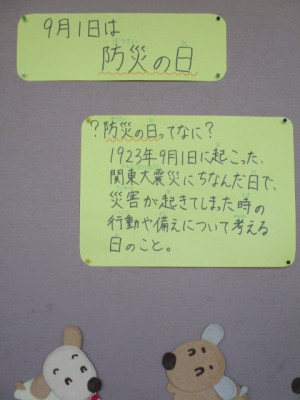 9月1日は
防災の日
?防災の日ってなに?
1923年9月1日に起こった、
関東大震災にちなんだ日で、
災害が起きてしまった時の
行動や備えについて考える
日のこと。